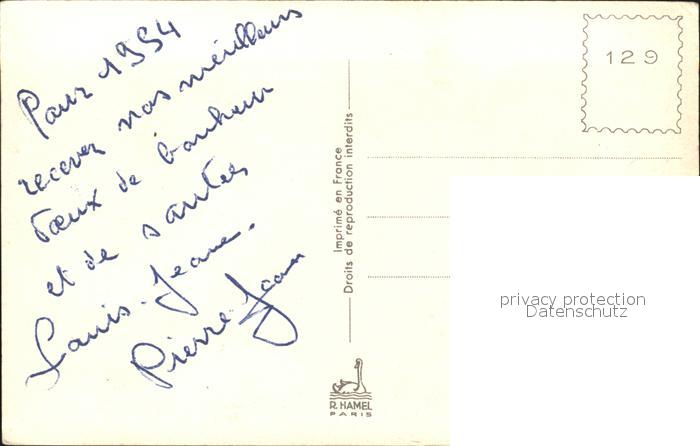 Pour 1954
recevez nos meilleurs
vœux de bonheur
et de santées
Louis-Jeanne.
Pierre-Jean
129
Imprimé en France
Droits de reproduction interdits
R. HAMEL
PARIS
privacy protection
Datenschutz